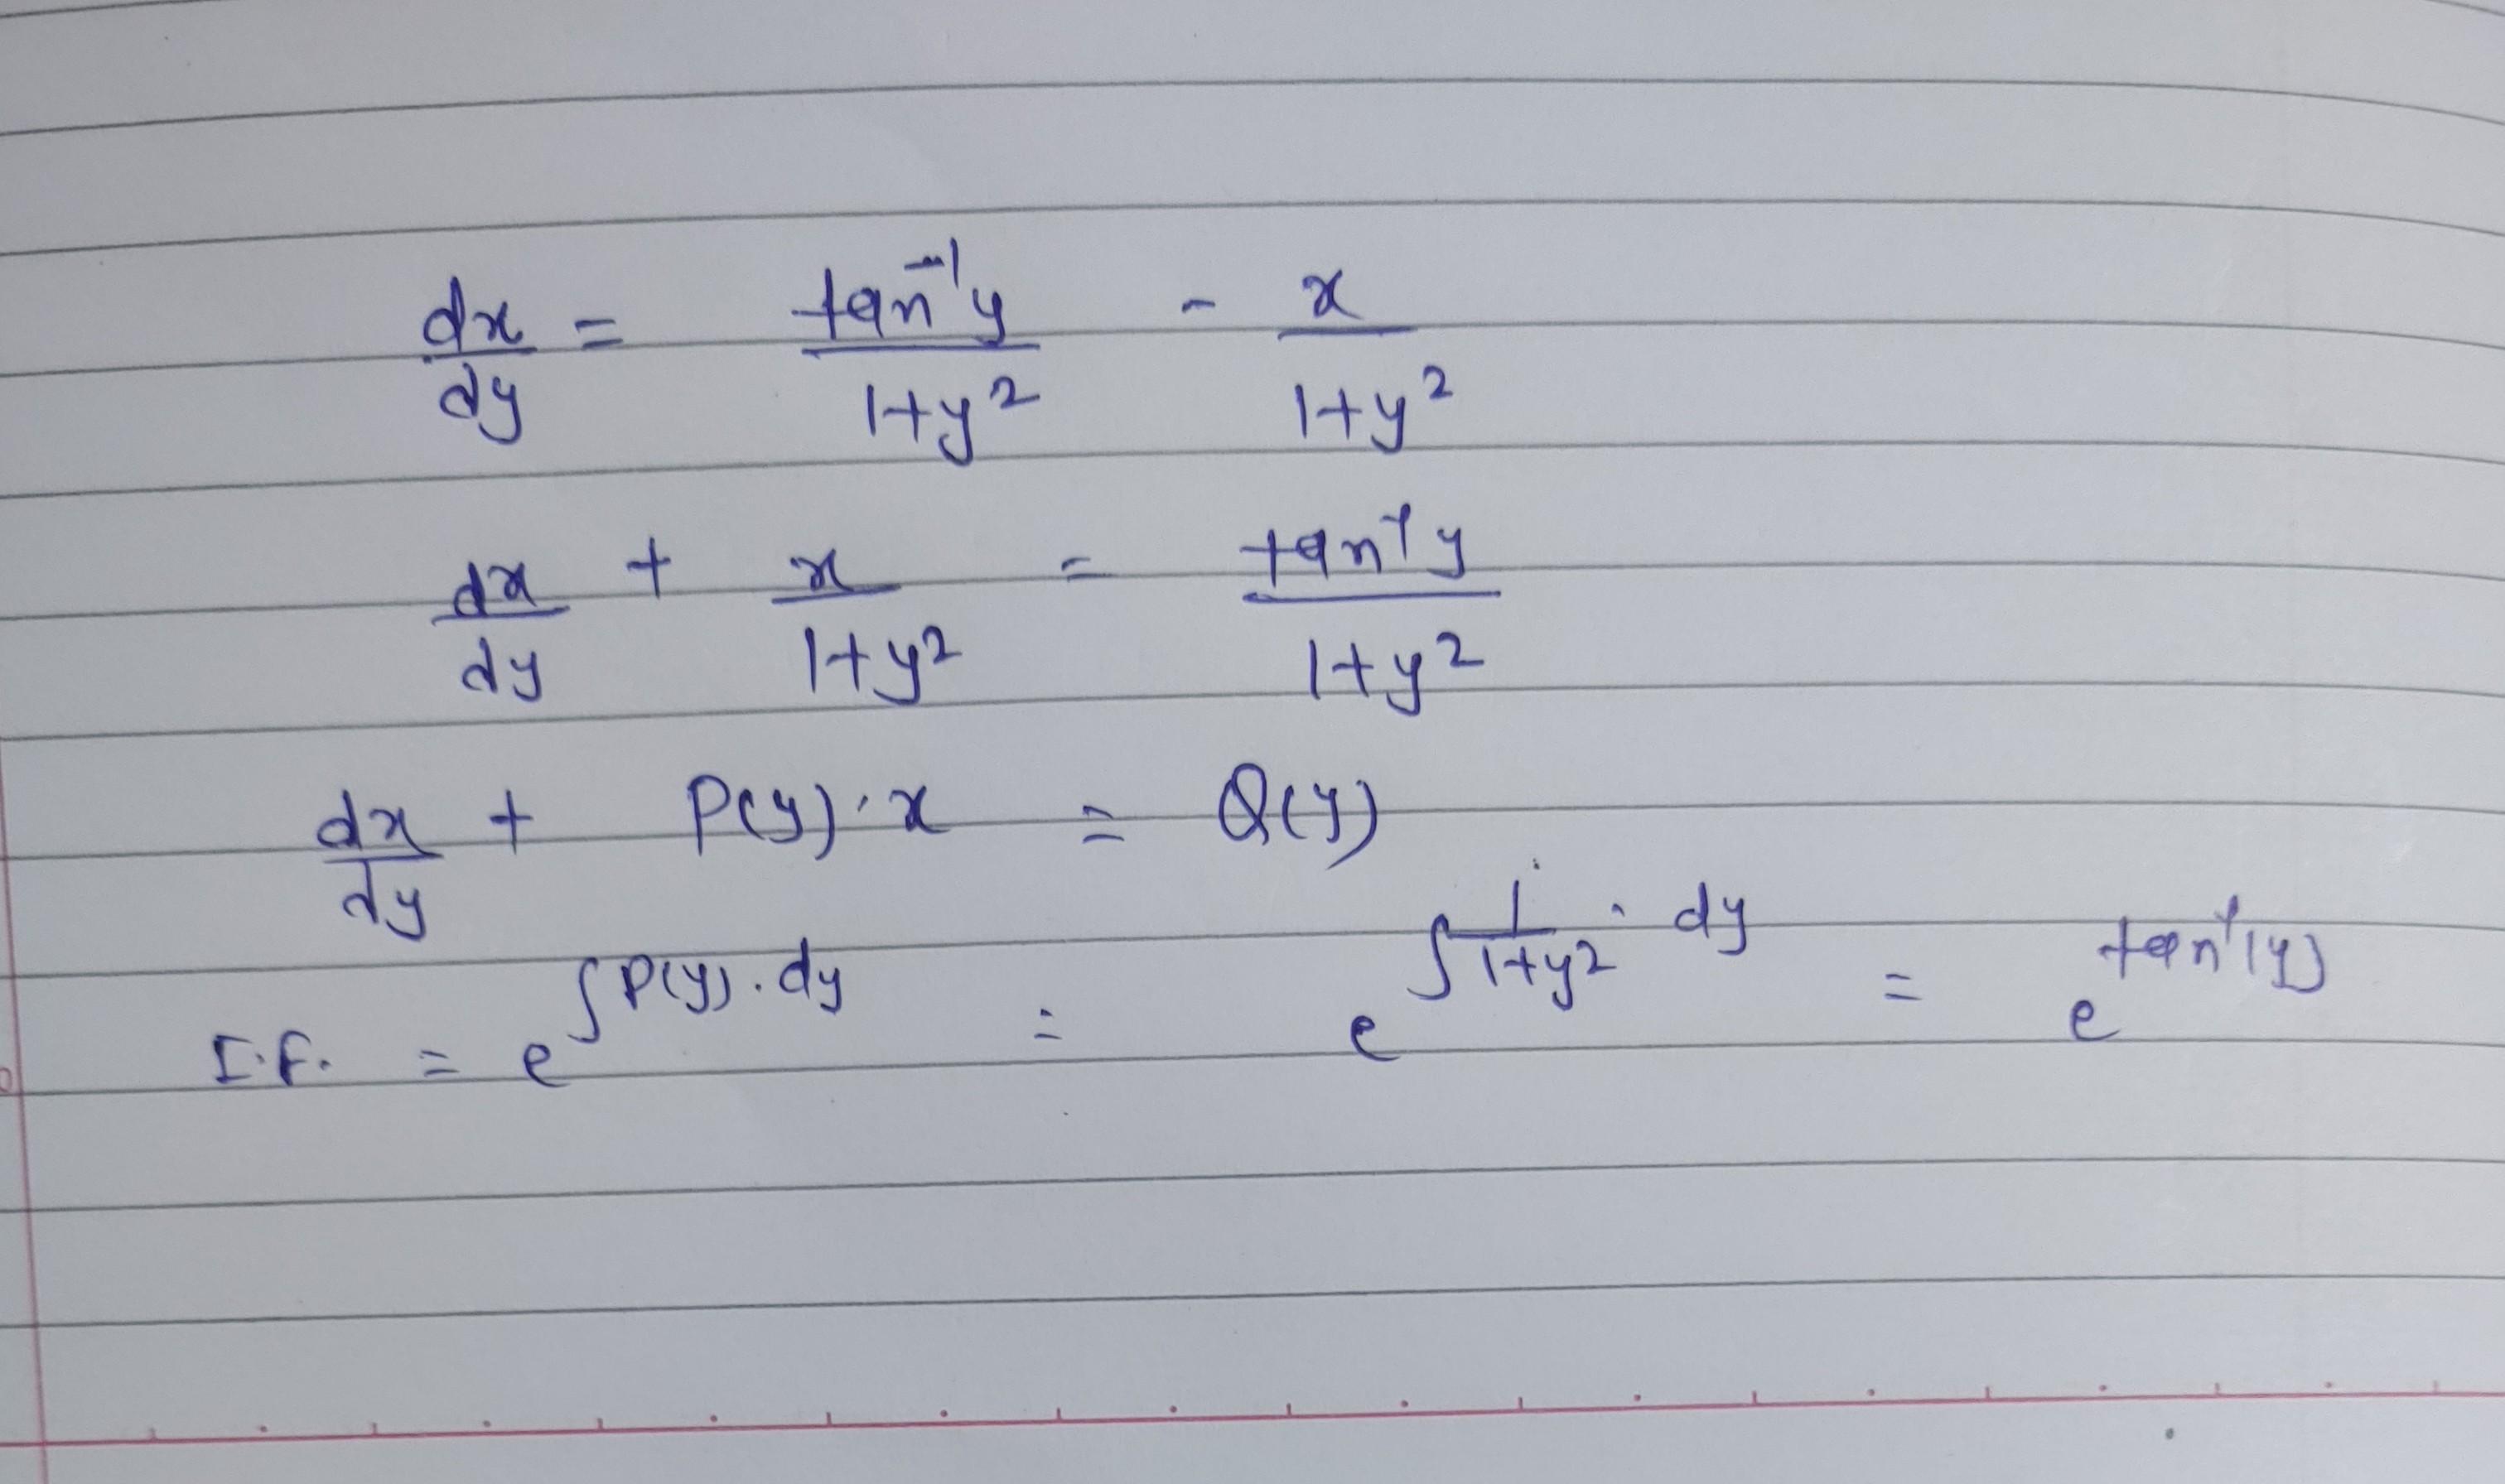 dx/dy = tan⁻¹y/1+y² - x/1+y²
dx/dy + x/1+y² = tan⁻¹y/1+y²
dx/dy + P(y)·x = Q(y)
I.F. = e^∫P(y)·dy = e^∫1/1+y²·dy = e^tan⁻¹(y)